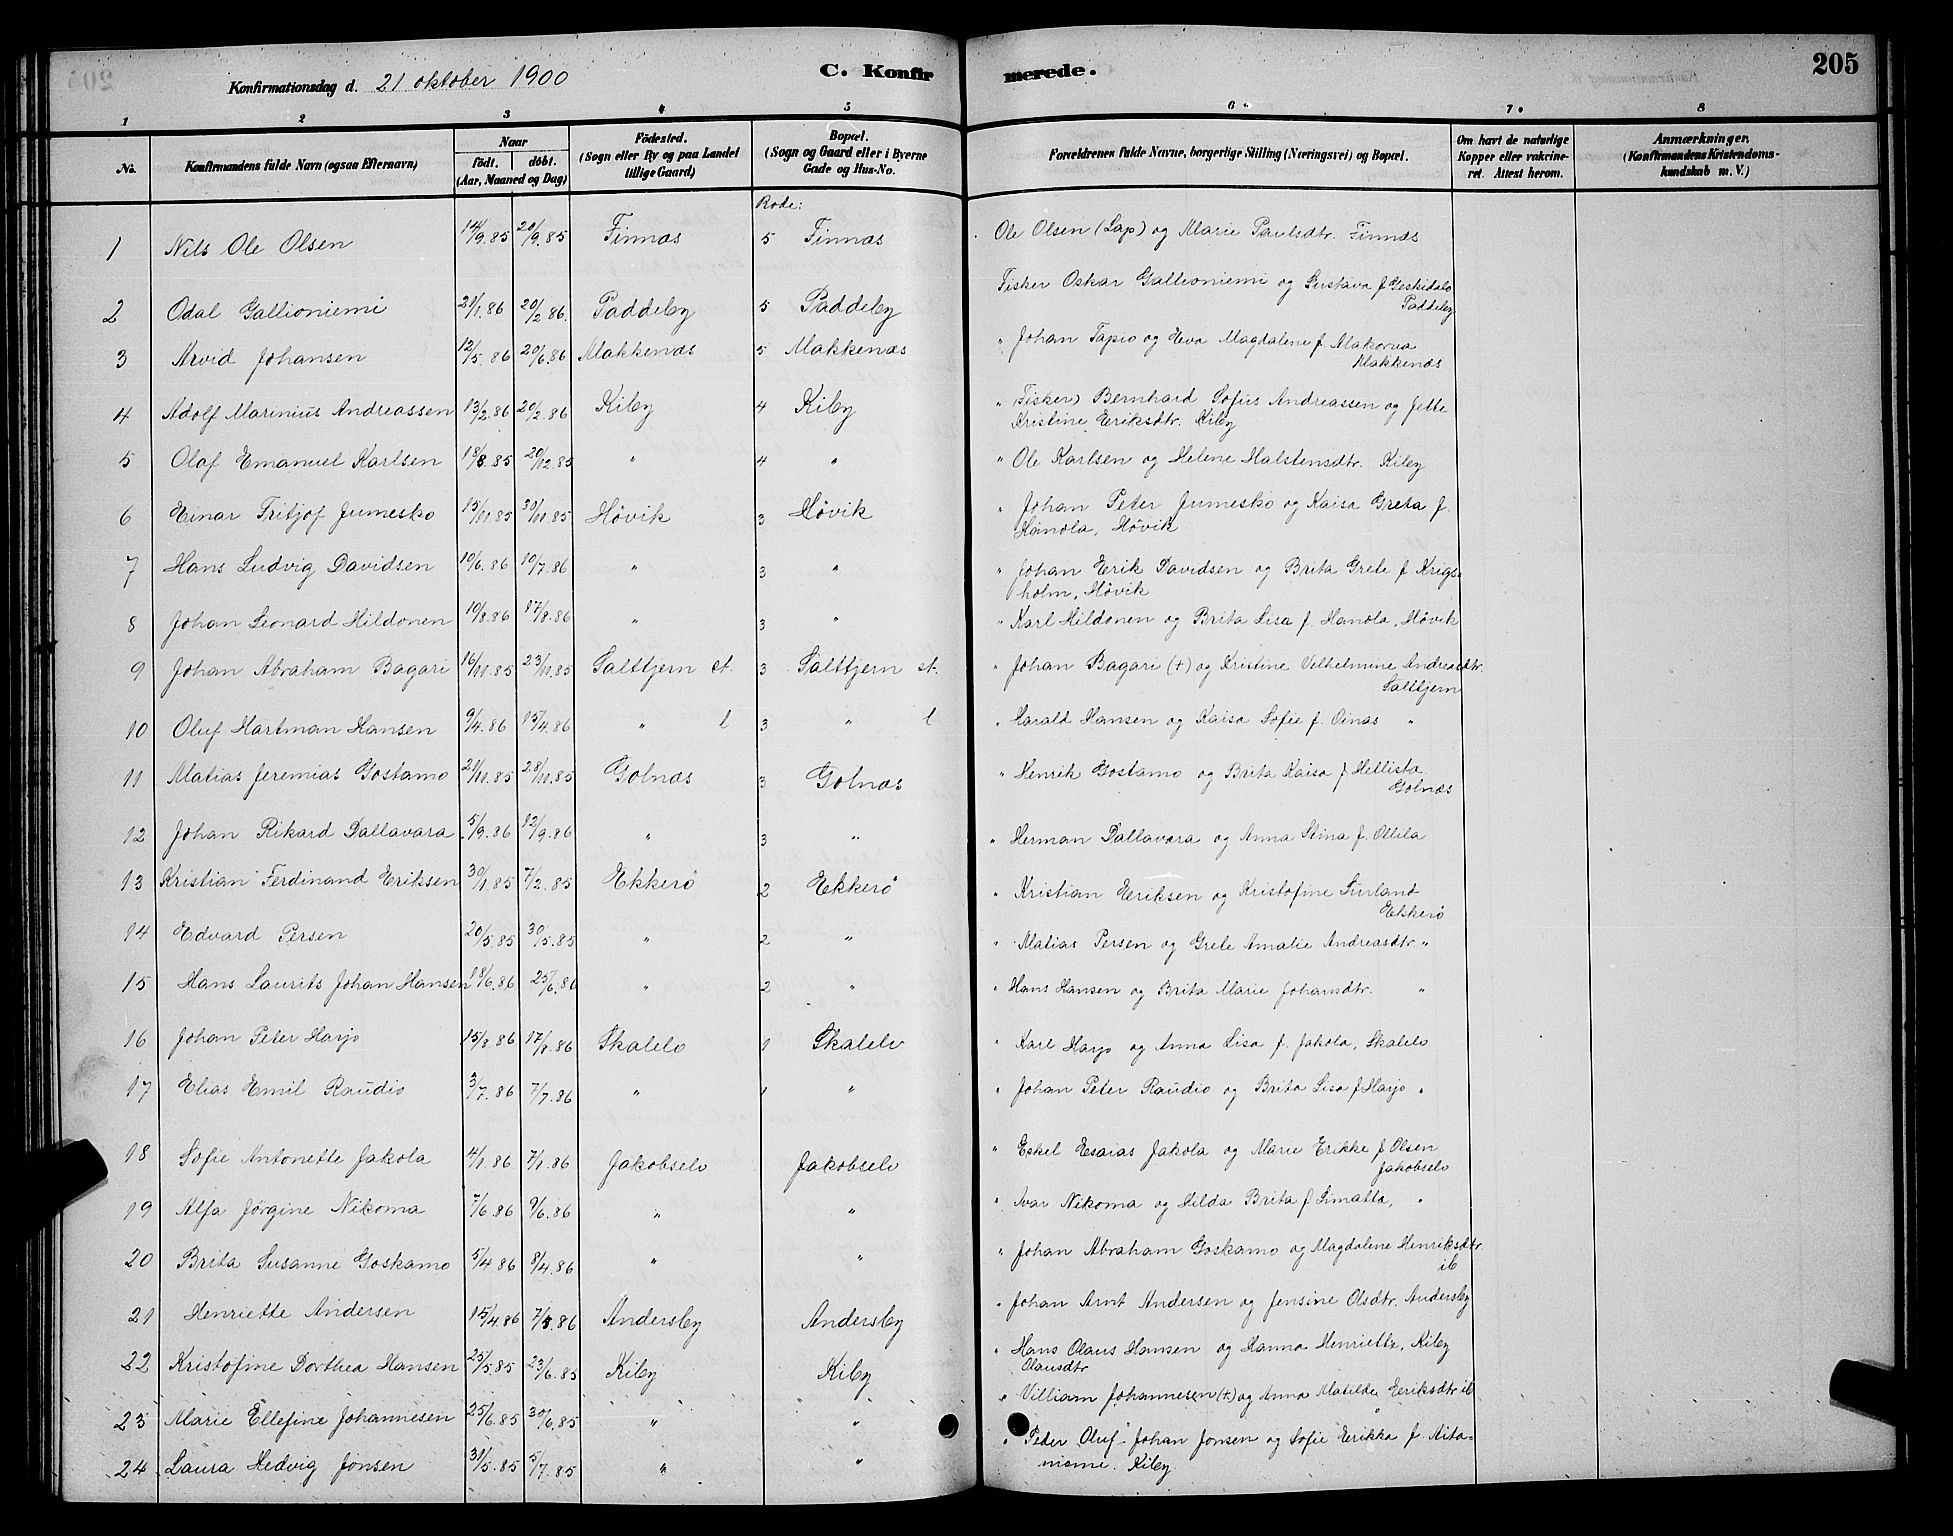 Konfirmationsdag d. 21 oktober 1900
C. Konfirmerede.
205
1 2 3 4 5 6. 7. 8
No.
Konfirmandens fulde Navn (ogsaa Efternavn)
Naar født. døbt. (Aar, Maaned og Dag)
Födested. (Sogn eller By og paa Landet tillige Gaard)
Bopæl. (Sogn og Gaard eller i Byerne Gade og Hus-No.
Forældrenes fulde Navne, borgerlige Stilling (Næringsvei) og Bopæl.
Om havt de naturlige Kopper eller vakcineret. Attest herom.
Anmærkninger. (Konfirmandens Kristendomskundskab m. V.)
Rode:
1 Nils Ole Olsen 14/9.85 20/9.85 Finnæs 5 Finnæs Ole Olsen (Lap) og Marie Paulsdtr. Finnæs
2 Odal Gallioniemi 21/1.86 20/2 86. Paddeby 5 Paddeby Fisker Oskar Gallioniemi og Gustava f. Geskidalo
Paddeby
3 Arvid Johansen 12/5.86 20/6.86 Makkenæs 5 Makkenæs " Johan Tapio og Eva Magdalene f. Makorva
Makkenæs
4 Adolf Marinius Andreassen 13/2.86 20/2.86 Kiby 4 Kiby " Fisker) Bernhard Sofus Andreassen og Jette
Kristine Eriksdtr. Kiby
5 Olaf Emanuel Karlsen 18/8.85 20/12.85 " 4 " " Ole Karlsen og Helene Halstensdtr. Kiby
6 Einar Fritjof Jumesko 15/11.85 30/11.85 Høvik 3 Høvik " Johan Peter Jumesko og Kaisa Greta f.
Hanola, Høvik
7 Hans Ludvig Davidsen 10/6.86 10/7.86 " 3 " " Johan Erik Davidsen og Brita Grete f. Krigs-
holm, Høvik
8 Johan Leonard Hildonen 10/8.86 17/8.86 " 3 " " Karl Hildonen og Brita Lisa f. Hanola, Høvik
9 Johan Abraham Bagari 16/11.85 23/11.85 Salttjern st. 3 Salttjern st. " Johan Bagari (+) og Kristine Vilhelmine Andreasdtr.
Salttjern
10 Oluf Hartman Hansen 9/4.86 15/4.86 " l 3 " l " Harald Hansen og Kaisa Sofie f. Oinas "
11 Matias Jeremias Gostamo 21/11.85 28/11.85 Golnæs 3 Golnæs " Henrik Gostamo og Brita Kaisa f. Hettista
Golnæs
12 Johan Rikard Dallavara 5/9.86 12/9.86 " 3 " " Herman Dallavara og Anna Stina f. Ollila
13 Kristian Ferdinand Eriksen 30/1.85 7/2.85 Ekkerø 2 Ekkerø " Kristian Eriksen og Kristofine Sinland
Ekkerø
14 Edvard Persen 20/5.85 30/5.85 " 2 " " Matias Persen og Grete Amalie Andreasdtr "
15 Hans Laurits Johan Hansen 18/6.86 25/6.86 " 2 " " Hans Hansen og Brita Marie Johansdtr. "
16 Johan Peter Harjo 15/8.86 17/8.86 Skalelv 1 Skalelv " Karl Harjo og Anna Lisa f. Jakola, Skalelv
17 Elias Emil Raudio 3/7.86 7/7.86 " 1 " " Johan Peter Raudio og Brita Lisa f. Harjo "
18 Sofie Antonette Jakola 4/1.86 7/1.86 Jakobselv Jakobselv " Eskel Esaias Jakola og Marie Erikke f. Olsen
Jakobselv
19 Alfa Jørgine Nikoma 7/6.86 9/6.86 " " " Ivar Nikoma og Hilda Brita f. Simatta, "
20 Brita Susanne Goskamo 5/4 86 8/4.86 " " " Johan Abraham Goskamo og Magdalene Henriksdtr.
ib
21 Henriette Andersen 15/4.86 7/5.86 Andersby Andersby " Johan Arnt Andersen og Jensine Olsdtr. Andersby
22 Kristofine Dorthea Hansen 25/5.85 23/6.85 Kiby Kiby " Hans Olaus Hansen og Hanna Henriette, Kiby
Olausdtr
23 Marie Ellefine Johannesen 25/6.85 30/6.85 " " " Villiam Johannesen (+) og Anna Matilde Eriksdtr ib
24 Laura Hedvig Jonsen 31/5.85 5/7.85 " " " Peder Oluf Johan Jonsen og Sofie Erikka f. Aita-
niemi. Kiby